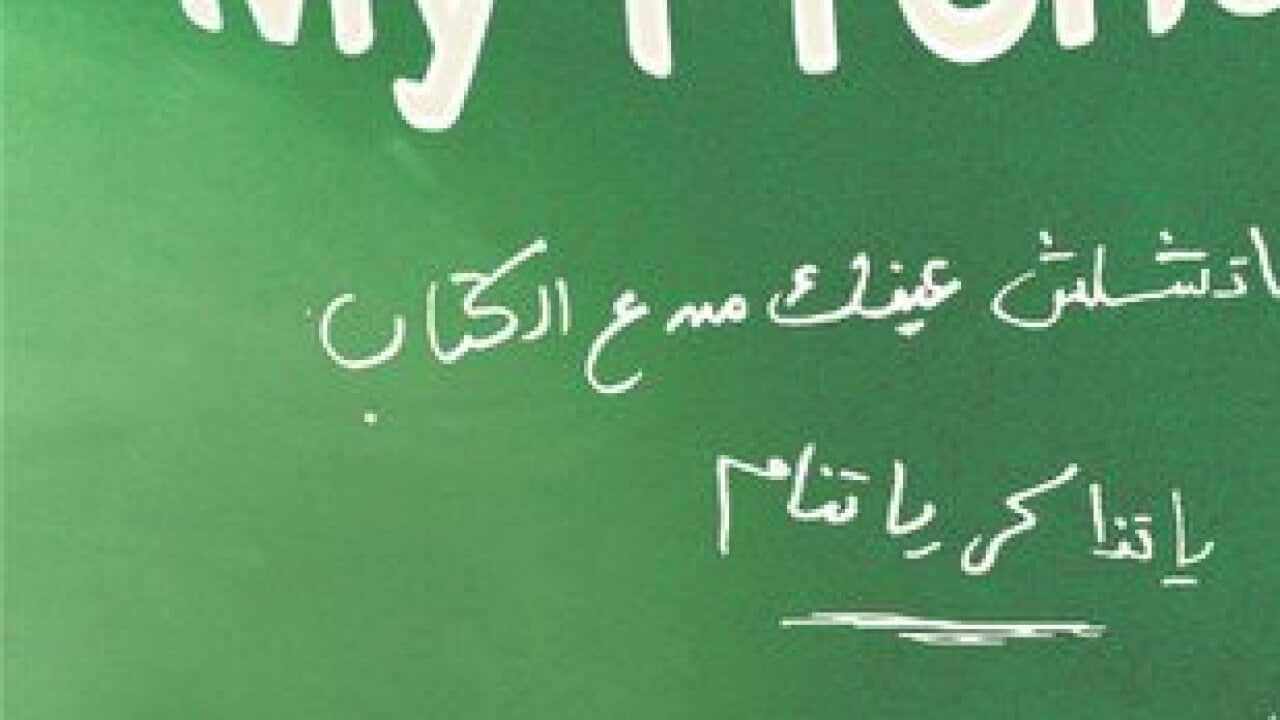 My
اتشلش عينك من ع الكتاب
يا تذاكر يا تنام